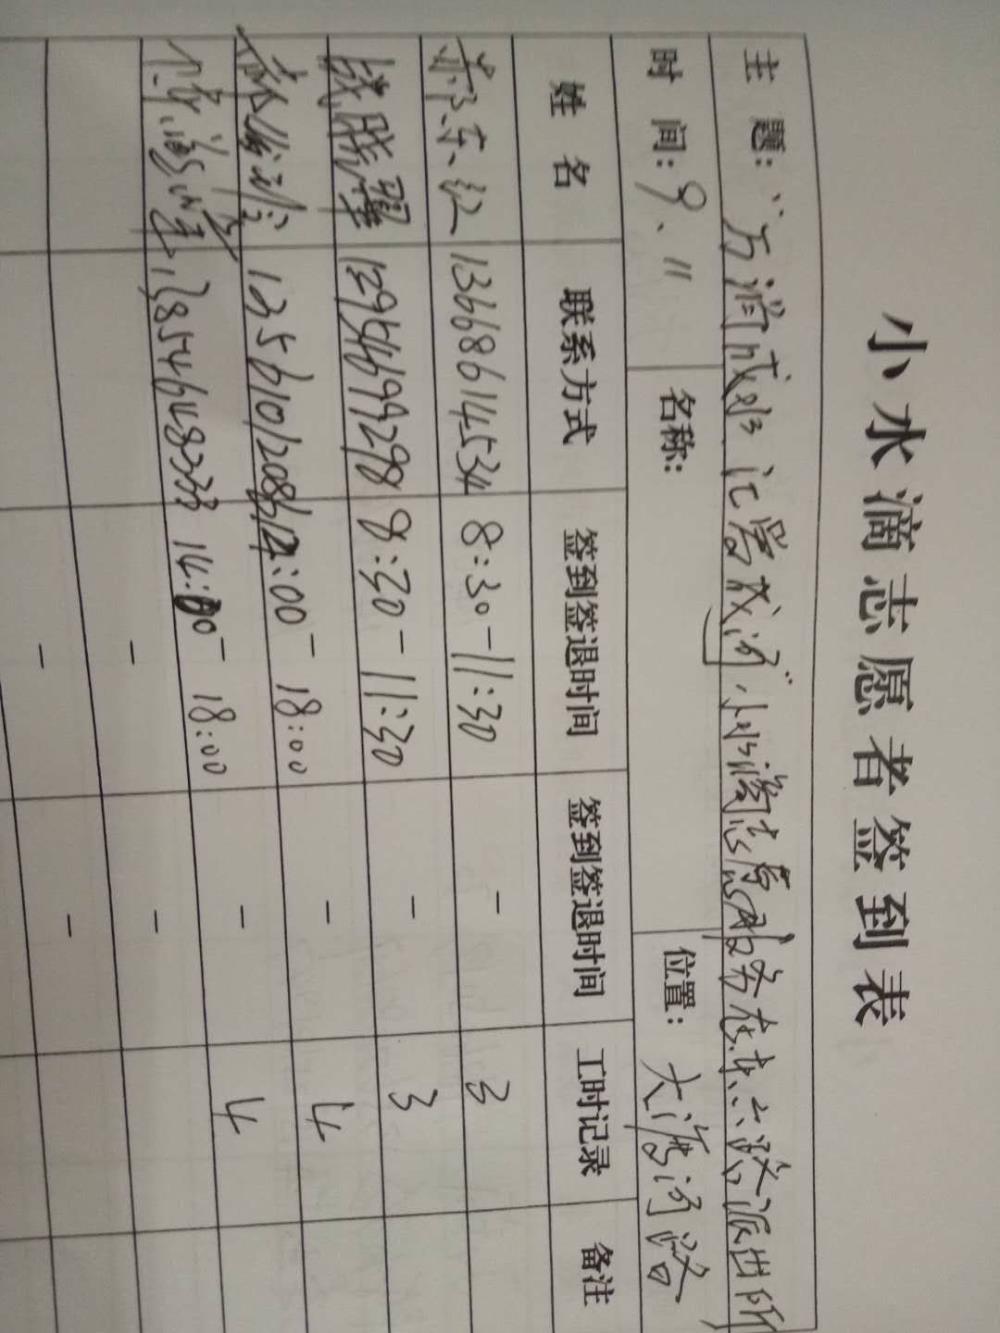 小水滴志愿者签到表
主 题：“万涓成水 汇聚成河”小水滴志愿服务在东六路派出所
时 间：9、11 名称： 位置：大湾河路
姓 名 联系方式 签到签退时间 签到签退时间 工时记录 备注
苏东红 13668614534 8:30-11:30 - 3
8:30-11:30 - 3
14:00-18:00 - 4
13854648333 14:00-18:00 - 4
- -
- -